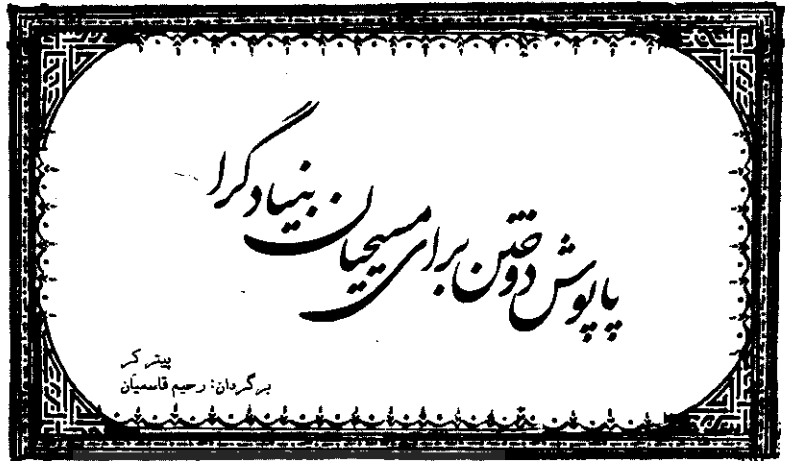 پاپوش دوختن برای مسیحیان بنیادگرا
پیتر کر
برگردان: رحیم قاسمیان